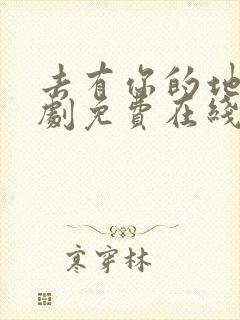 去有你的地
劇免費在綫
寒穿林